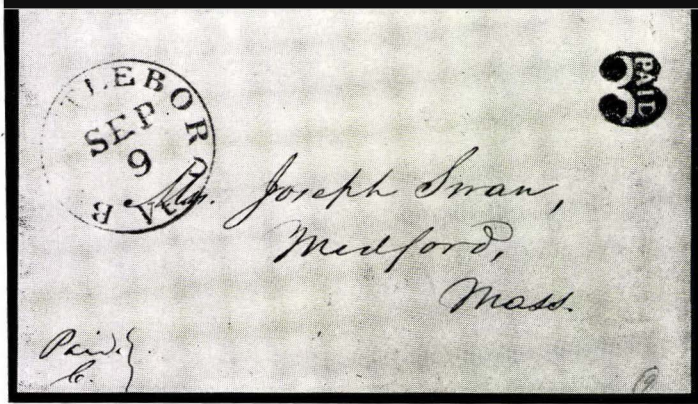 TLEBORO
SEP
9
PAID
3
Mrs. Joseph Swan,
Medford,
Mass.
Paid.
C.